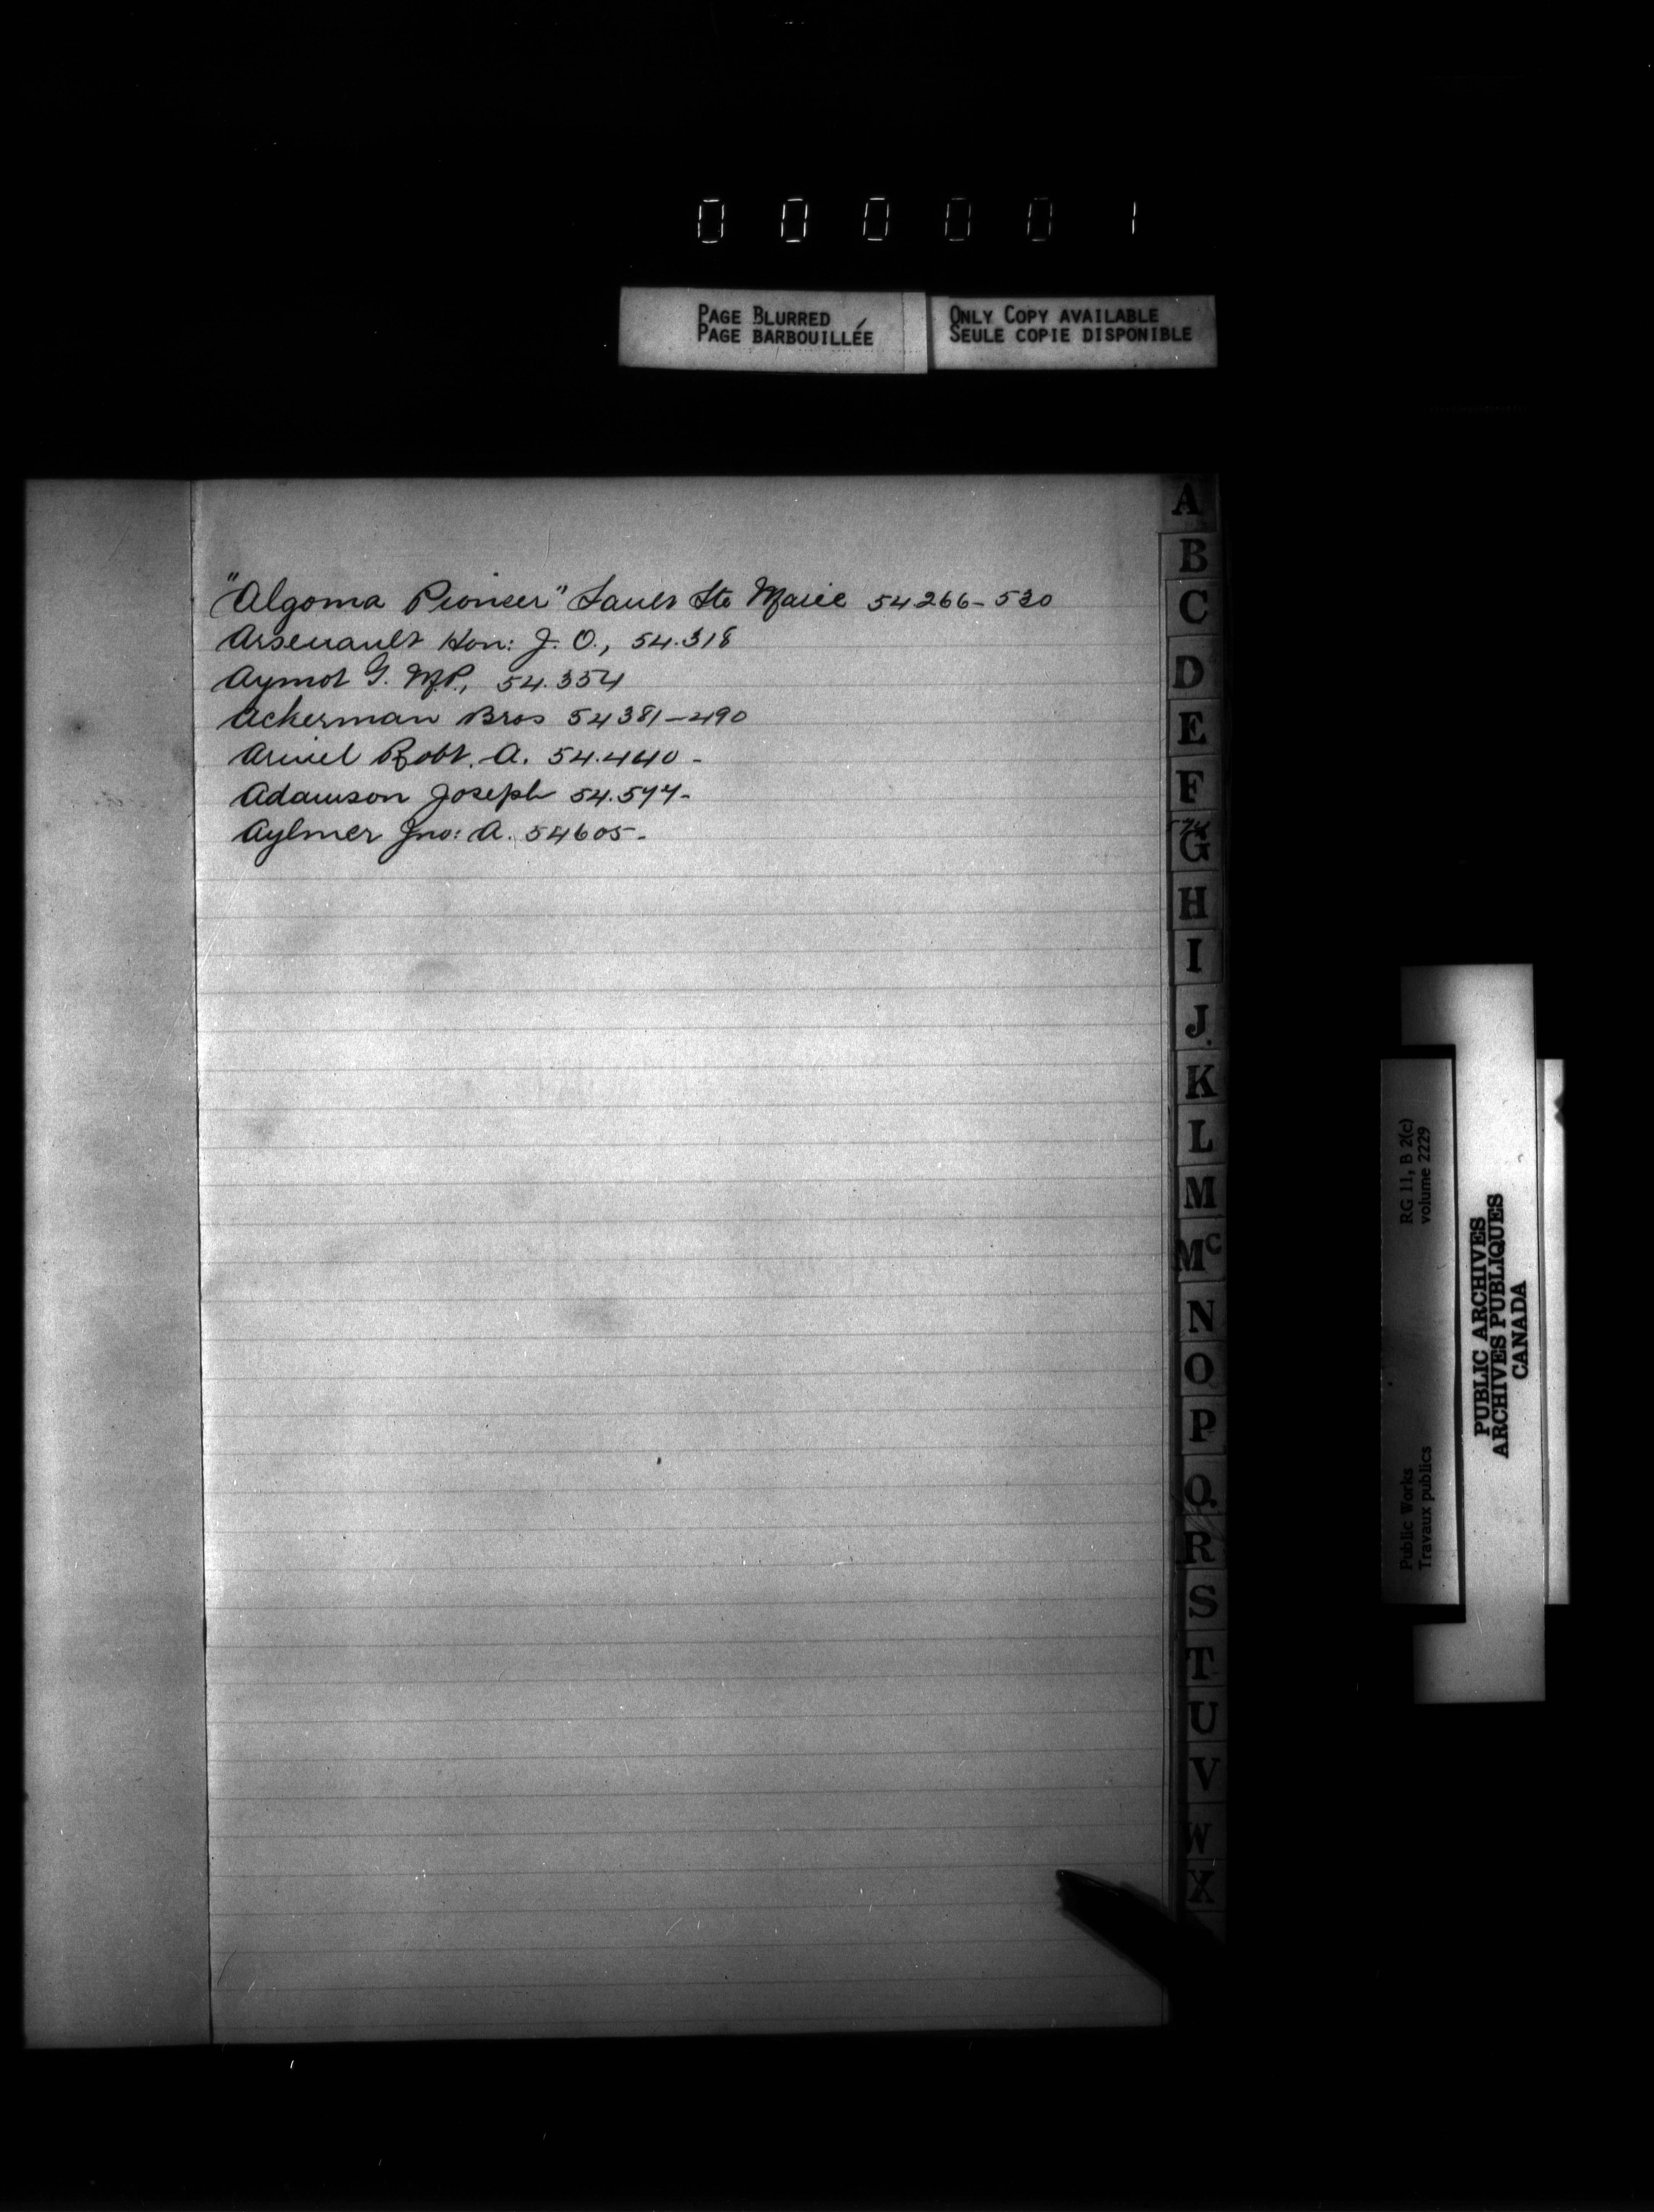 000001
PAGE BLURRED
PAGE BARBOUILLÉE
ONLY COPY AVAILABLE
SEULE COPIE DISPONIBLE
"Algoma Pioneer" Sault Ste Marie 54266-530
Arsenault Hon: J. O., 54.318
Aymot G. M.P., 54.354
Ackerman Bros 54381-490
Robt. A. 54.440-
Adamson Joseph 54.574-
Aylmer Jno: A. 54605-
A
B
C
D
E
F
G
H
I
J.
K
L
M
Mc
N
O
P
Q
R
S
T
U
V
W
X
RG 11, B 2(c)
volume 2229
Public Works
Travaux publics
PUBLIC ARCHIVES
ARCHIVES PUBLIQUES
CANADA